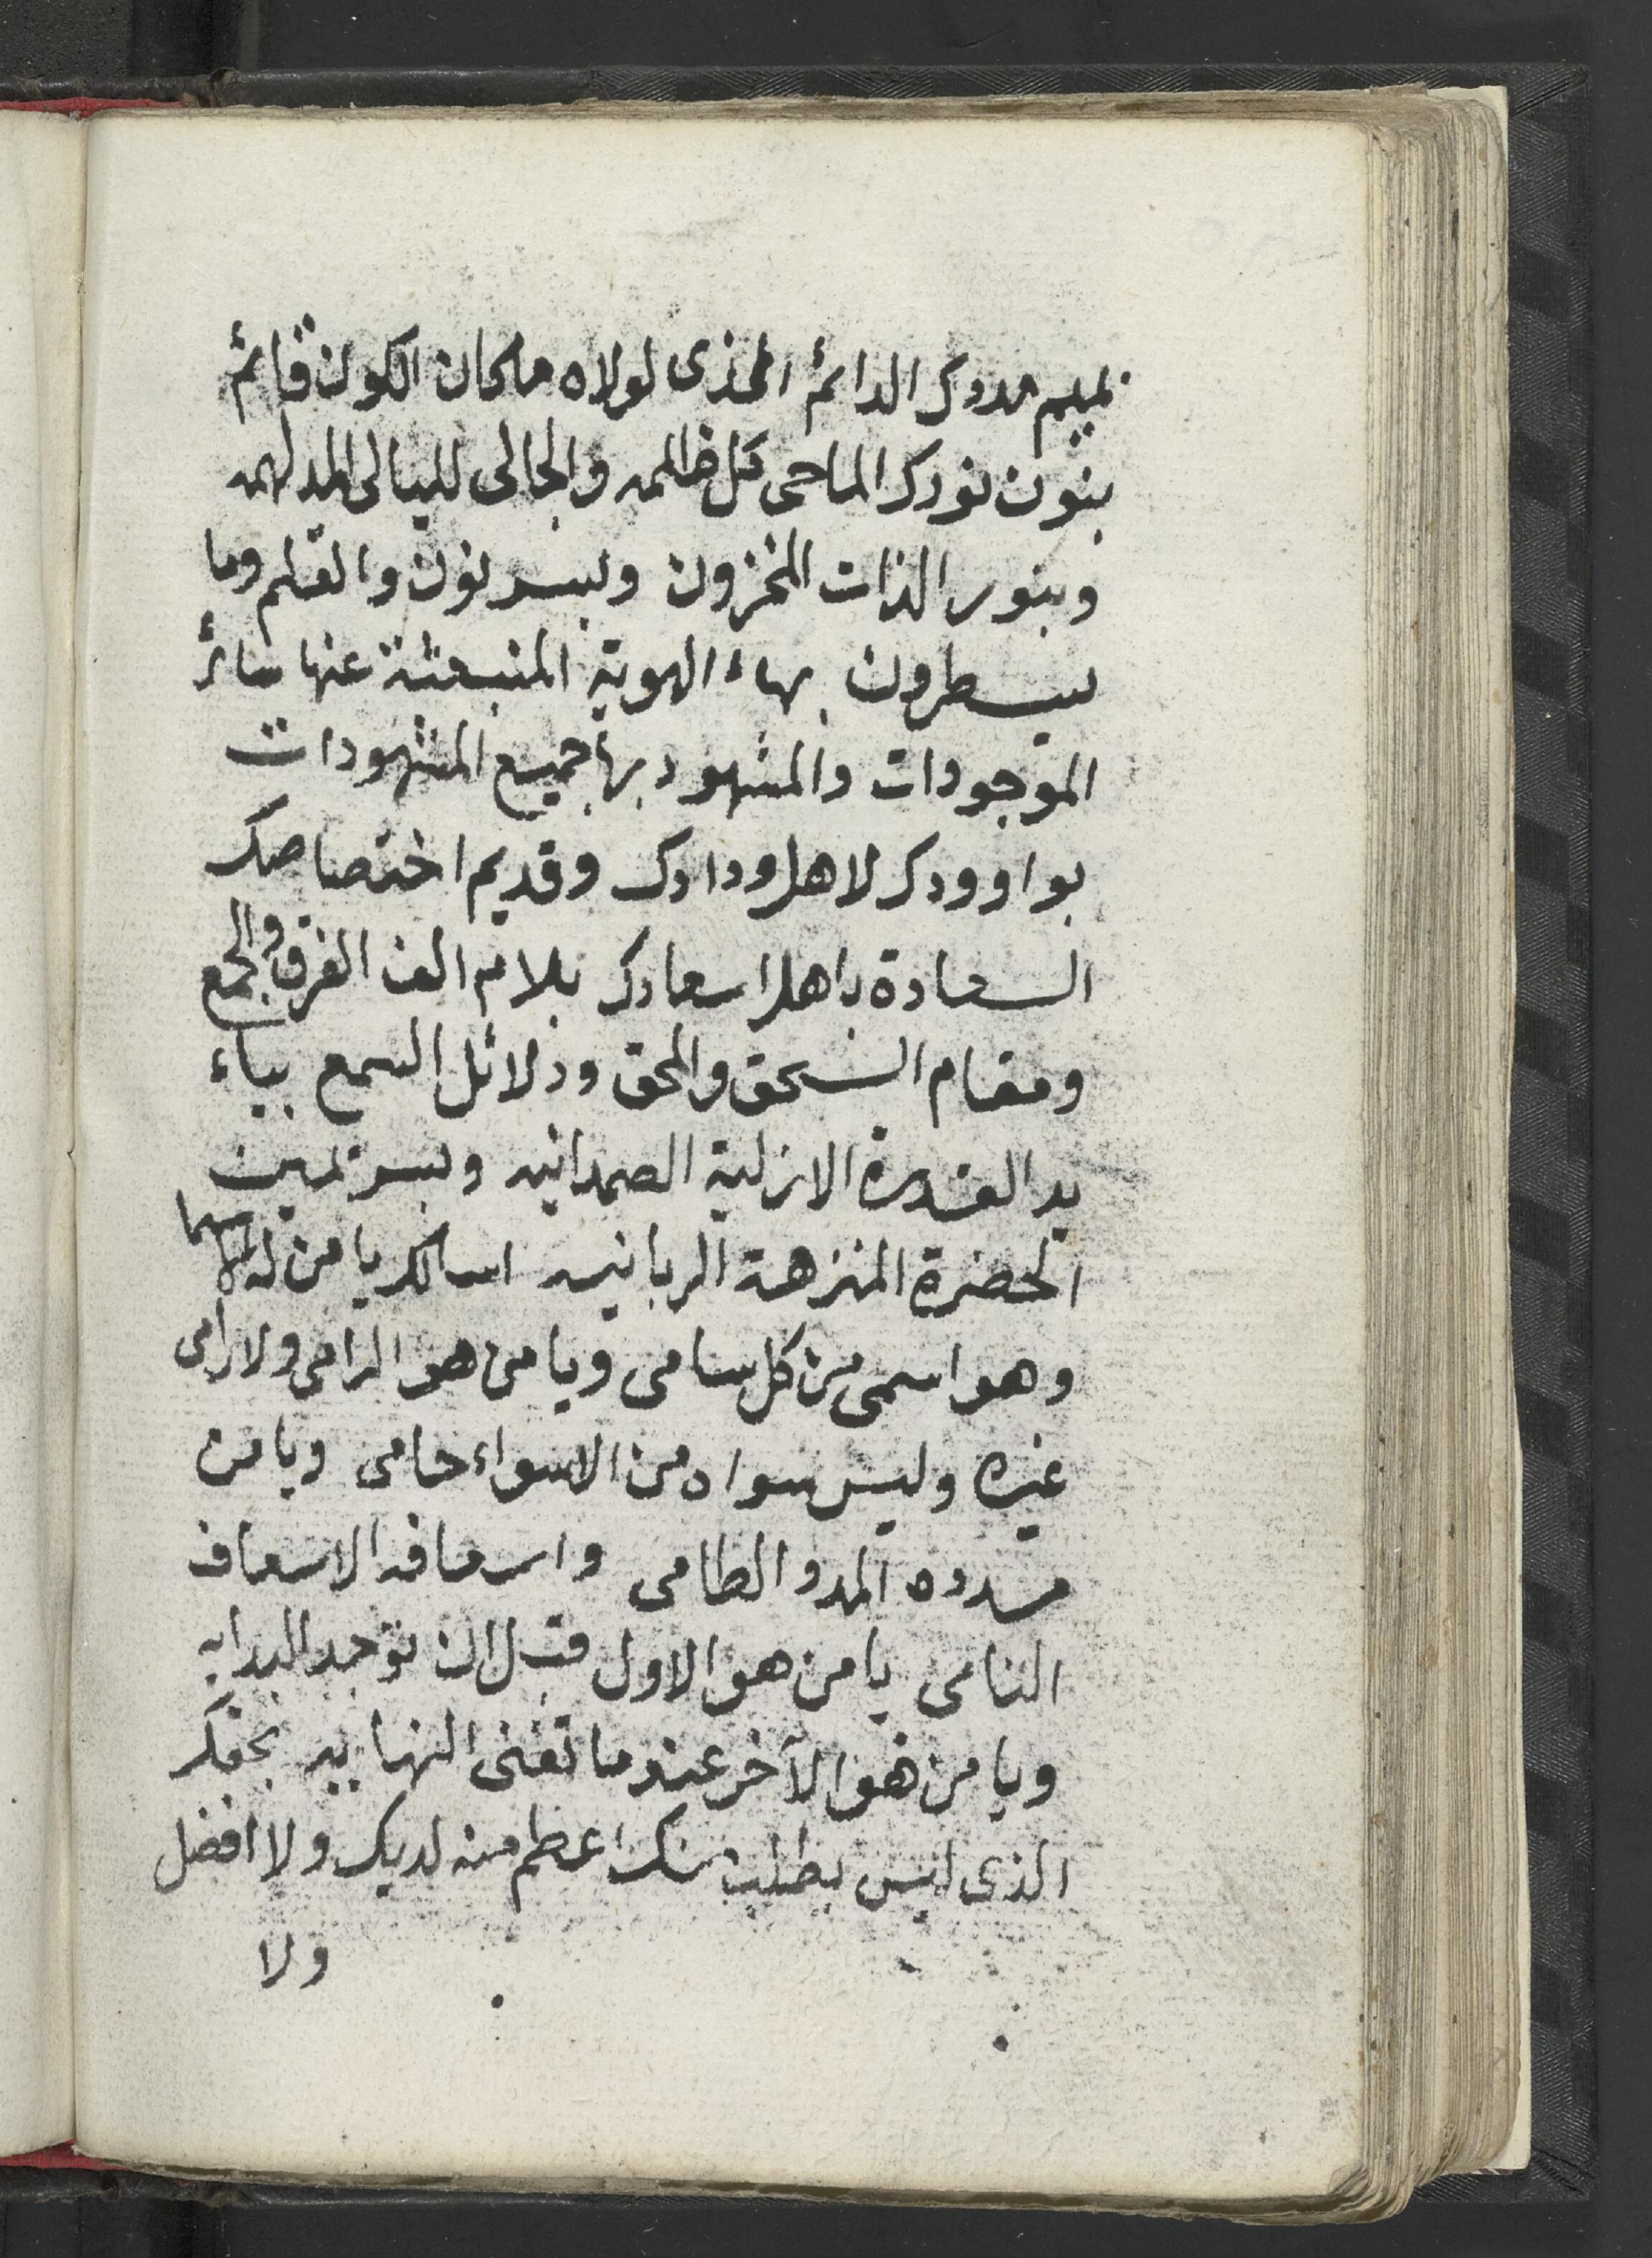 بميم مددك الدائم الذى لولاه ماكان الكون قائم
بنون نورك الماحى كل ظلمه والجالى لليالى المدلهمه
وبنور الذات المخزون وبسر نون والقلم وما
يسطرون بهاء الهوية المنبعثة عنها سائر
الموجودات والمشهود بها جميع المشهودات
بواو ودك لاهل ودادك وقديم اختصاصك
السعادة باهل اسعادك بلام الف الفرق والجمع
ومقام السحق والمحق ودلائل السمع بياء
يد القدرة الازلية الصمدانيه وبسر يمين
الحضرة المنزهة الربانيه اسالك يا من له الاسما
وهو اسمى من كل سامى ويا من هو الرامى ولا رامى
غيره وليس سواه من الاسواء حامى ويا من
مدده المدد الطامى واسعافه الاسعاف
النامى يا من هو الاول قبل ان توجد البدايه
ويا من هو الآخر عندما تفنى النهايه بحقك
الذى ليس يطلب منك اعظم منه لديك ولا افضل
ولا